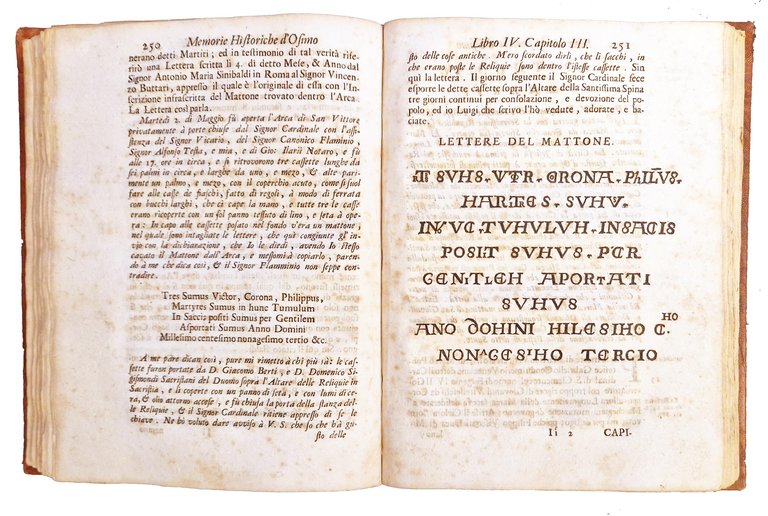 250 Memorie Historiche d'Osimo
nerano detti Martiri; ed in testimonio di tal verità rife-
rirò una Lettera scritta li 4. di detto Mese, & Anno dal
Signor Antonio Maria Sinibaldi in Roma al Signor Vincen-
zo Buttari, appresso il quale è l'originale di essa con l'In-
scrizione infrascritta del Mattone trovato dentro l'Arca.
La Lettera così parla.
Martedì 2. di Maggio fù aperta l'Arca di San Vittore
privatamente à porte chiuse dal Signor Cardinale con l'assi-
stenza del Signor Vicario, del Signor Canonico Flaminio,
Signor Alfonso Tesia, e mia, e di Gio: Ilarii Notaro, e fù
alle 17. ore in circa, e si ritrovorono tre cassette lunghe da
sei palmi in circa, e larghe da uno, e mezo, & alte pari-
mente un palmo, e mezo, con il coperchio acuto, come si suol
fare alle casse de fiaschi, fatto di regoli, à modo di ferrata
con bucchi larghi, che ci cape la mano, e tutte tre le casse
erano ricoperte con un sol panno tessuto di lino, e seta à ope-
ra: In capo alle cassette posato nel fondo v'era un mattone,
nel quale sono intagliate le lettere, che quì congiunte gl'in-
vio con la dichiarazione, che Io le diedi, avendo Io stesso
cavato il Mattone dall'Arca, e messomi à copiarlo, paren-
do à me che dica così, & il Signor Flamminio non seppe con-
tradire.
Tres Sumus Victor, Corona, Philippus,
Martyres Sumus in hunc Tumulum
In Saccis positi Sumus per Gentilem
Asportati Sumus Anno Domini
Millesimo centesimo nonagesimo tertio &c.
A me pare dican così, pure mi rimetto à chi più sà: le cas-
sette furon portate da D. Giacomo Berti, e D. Domenico Si-
gismondi Sacristani del Duomo sopra l'Altare delle Reliquie in
Sacristia, e li coperte con un panno di seta, e con lumi di ce-
ra, & olio attorno accese, e fù chiusa la porta della stanza del-
le Reliquie, & il Signor Cardinale ritiene appresso di se le
chiave. Ne hò voluto dare avviso à V. S. che so che hà gu-
sto delle
Libro IV. Capitolo III. 251
sto delle cose antiche. M'ero scordato dirli, che li sacchi, in
che erano poste le Reliquie sono dentro l'istesse cassette. Sin
quì la lettera. Il giorno seguente il Signor Cardinale fece
esporre le dette cassette sopra l'Altare della Santissima Spina
tre giorni continui per consolazione, e devozione del po-
polo, ed io Luigi che scrivo l'hò vedute, adorate, e ba-
ciate.
LETTERE DEL MATTONE.
SUHS. VTR. CRONA. PhILUS.
HARTES. SUHV.
IN UC. TUHULUH. INSACIS
POSIT SUHUS. PER
GENTLEH APORTATI
SUHUS
ANO DOHINI HILESIHO C. HO
NONAGESIHO TERCIO
Ii 2 CAPI-